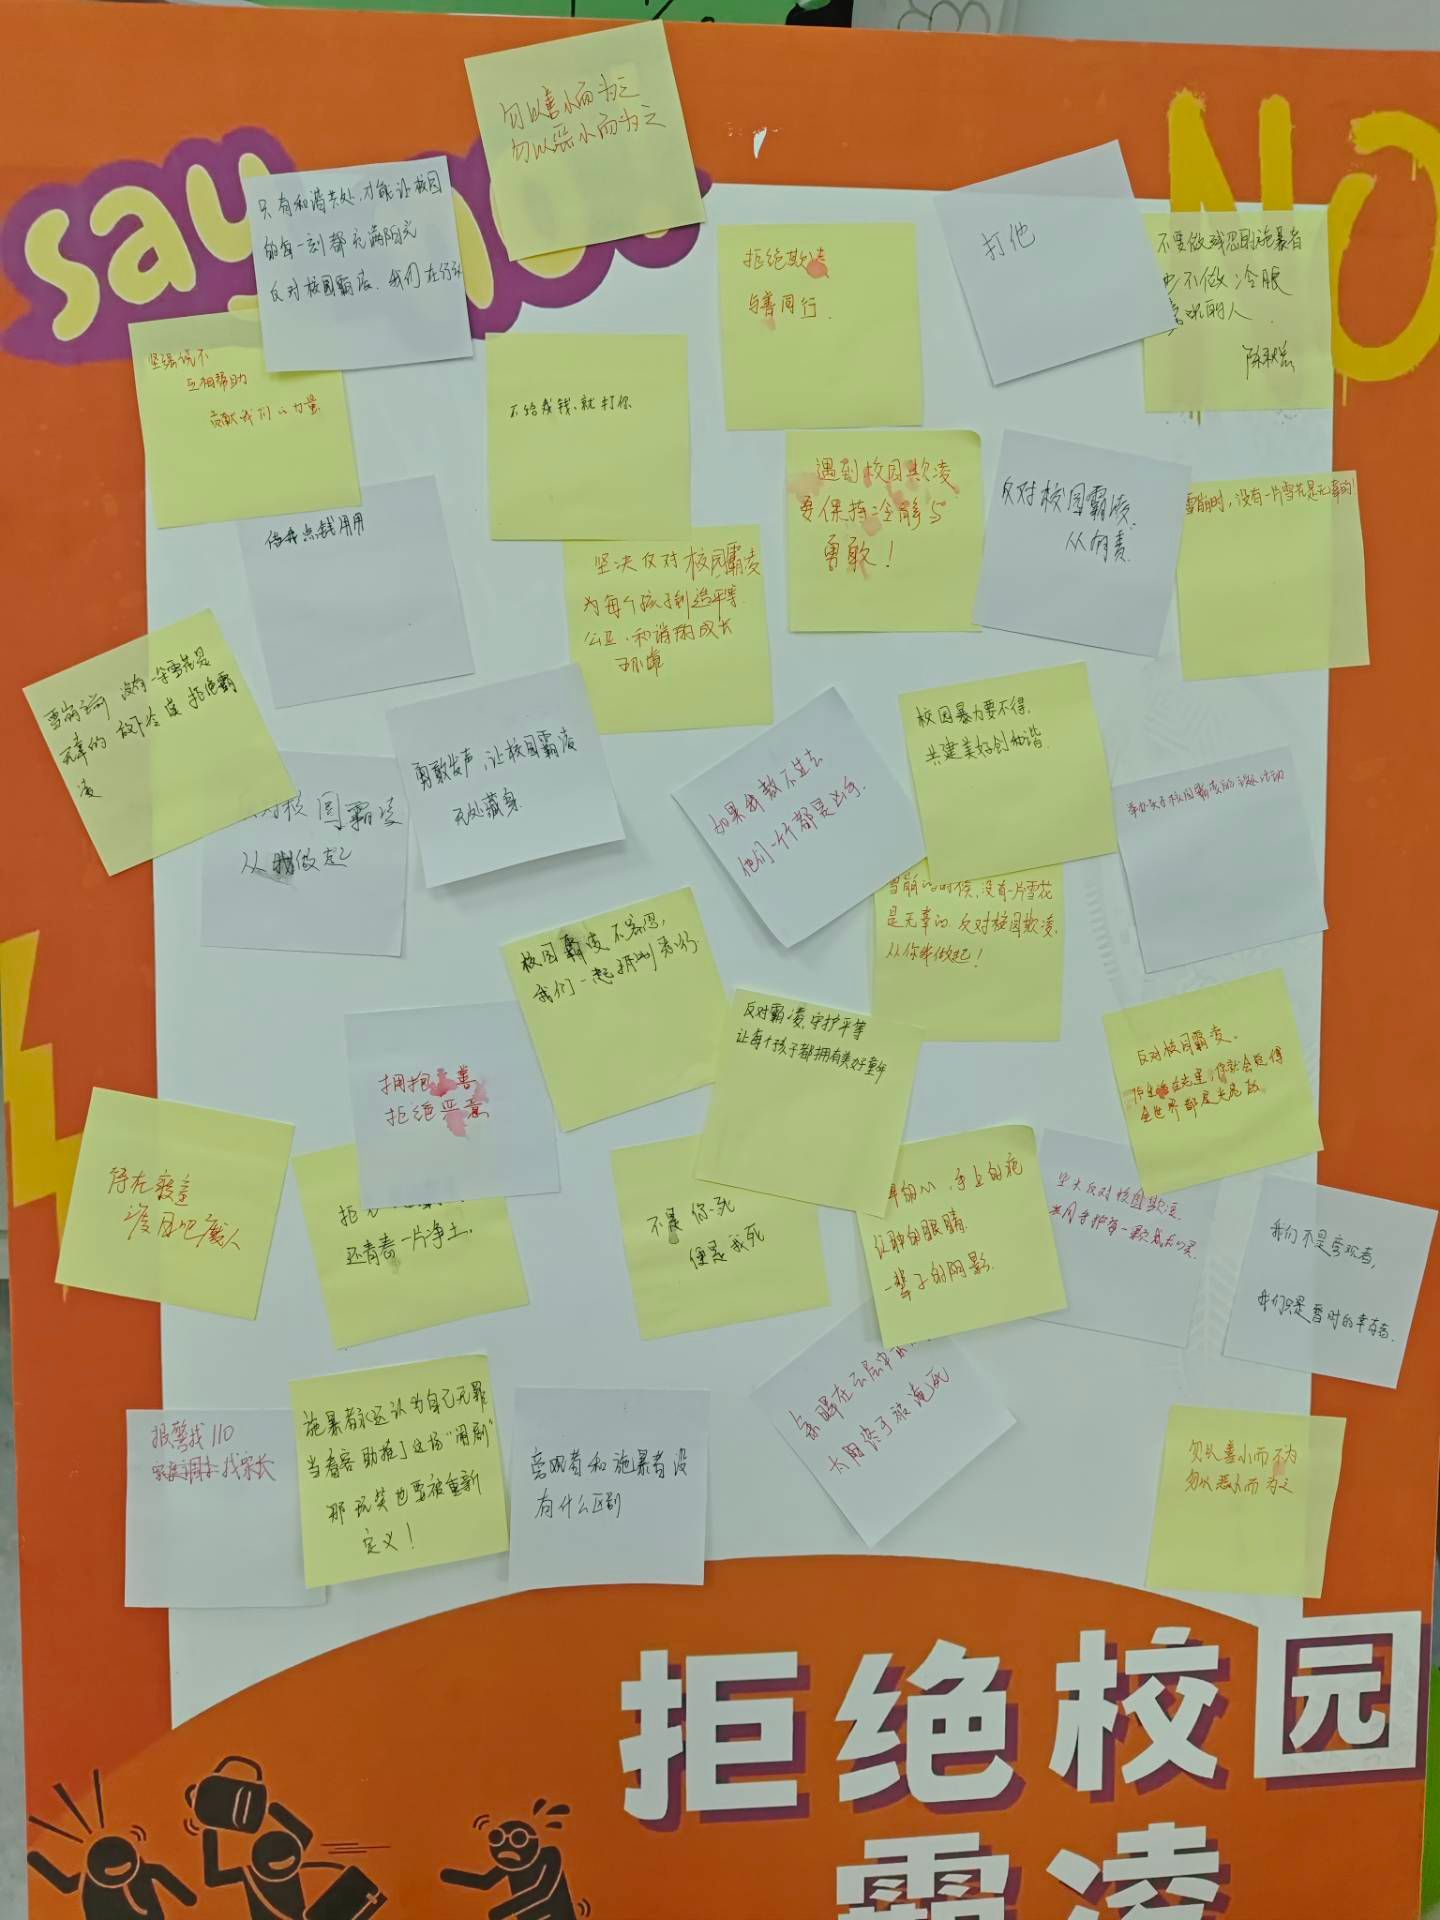 say no
NO
勿以善小而为之
勿以恶小而为之
只有和谐共处,才能让校园
的每一刻都充满阳光
反对校园霸凌,我们在行动
拒绝欺凌
与善同行.
打他
不要做残忍的施暴者
也不做冷眼
旁观的人.
坚强说不
互相帮助
贡献我们的力量
不给我钱,就打你
借我点钱用用
遇到校园欺凌
要保持冷静与
勇敢!
反对校园霸凌,
从何责
雪崩时,没有一片雪花是无辜的!
坚决反对校园霸凌
为每个孩子创造平等.
公正,和谐的成长
环境
雪崩之前 没有一朵雪花是
无辜的 放下冷漠 拒绝霸
凌
对校园霸凌
从我做起
勇敢发声,让校园霸凌
无处藏身.
如果我敖不过去
他们一个个都是凶手.
校园暴力要不得.
共建美好创和谐.
举办关于校园霸凌的主题活动
雪崩的时候,没有一片雪花
是无辜的.反对校园欺凌,
从你我做起!
校园霸凌不容忍,
我们一起
反对霸凌,守护平等
让每个孩子都拥有美好童年
反对校园霸凌.
你就会觉得
全世界都
拥抱善
拒绝恶意
还青春一片净土.
不是你死
便是我死
手上的疤
红肿的眼睛
一辈子的阴影.
坚大反对校园欺凌.
共同守护每一颗
我们不是旁观者,
我们只是暂时的幸存者.
报警找110
找家长
施暴者永远认为自己无罪
当看客助推了这场“闹剧”
那玩笑也要被重新
定义!
旁观者和施暴者没
有什么区别
太阳终于被淹死
勿以善小而不为
勿以恶小而为之
拒绝校园
霸凌